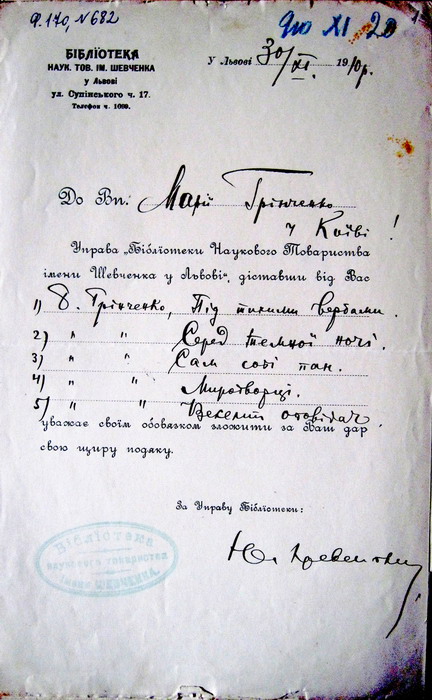 Ф. 170, N 682
БІБЛЇОТЕКА
НАУК. ТОВ. ІМ. ШЕВЧЕНКА
у Львові
ул. Супінського ч. 17.
Телєфон ч. 1060.
У Львові 30/XI. 1910 р.
До Вп. Марії Грінченко
у Київі!
Управа „Бібліотеки Наукового Товариства
імени Шевченка у Львові", діставши від Вас
1) Б. Грінченко, Під тихими вербами.
2) " " Серед темної ночі.
3) " " Сам собі пан.
4) " " Миротворці.
5) " " Веселий оповідач,
уважає своїм обовязком зложити за Ваш дар
свою щиру подяку.
За Управу Бібліотеки:
Бібліотека
наукового товариства
імени ШЕВЧЕНКА.